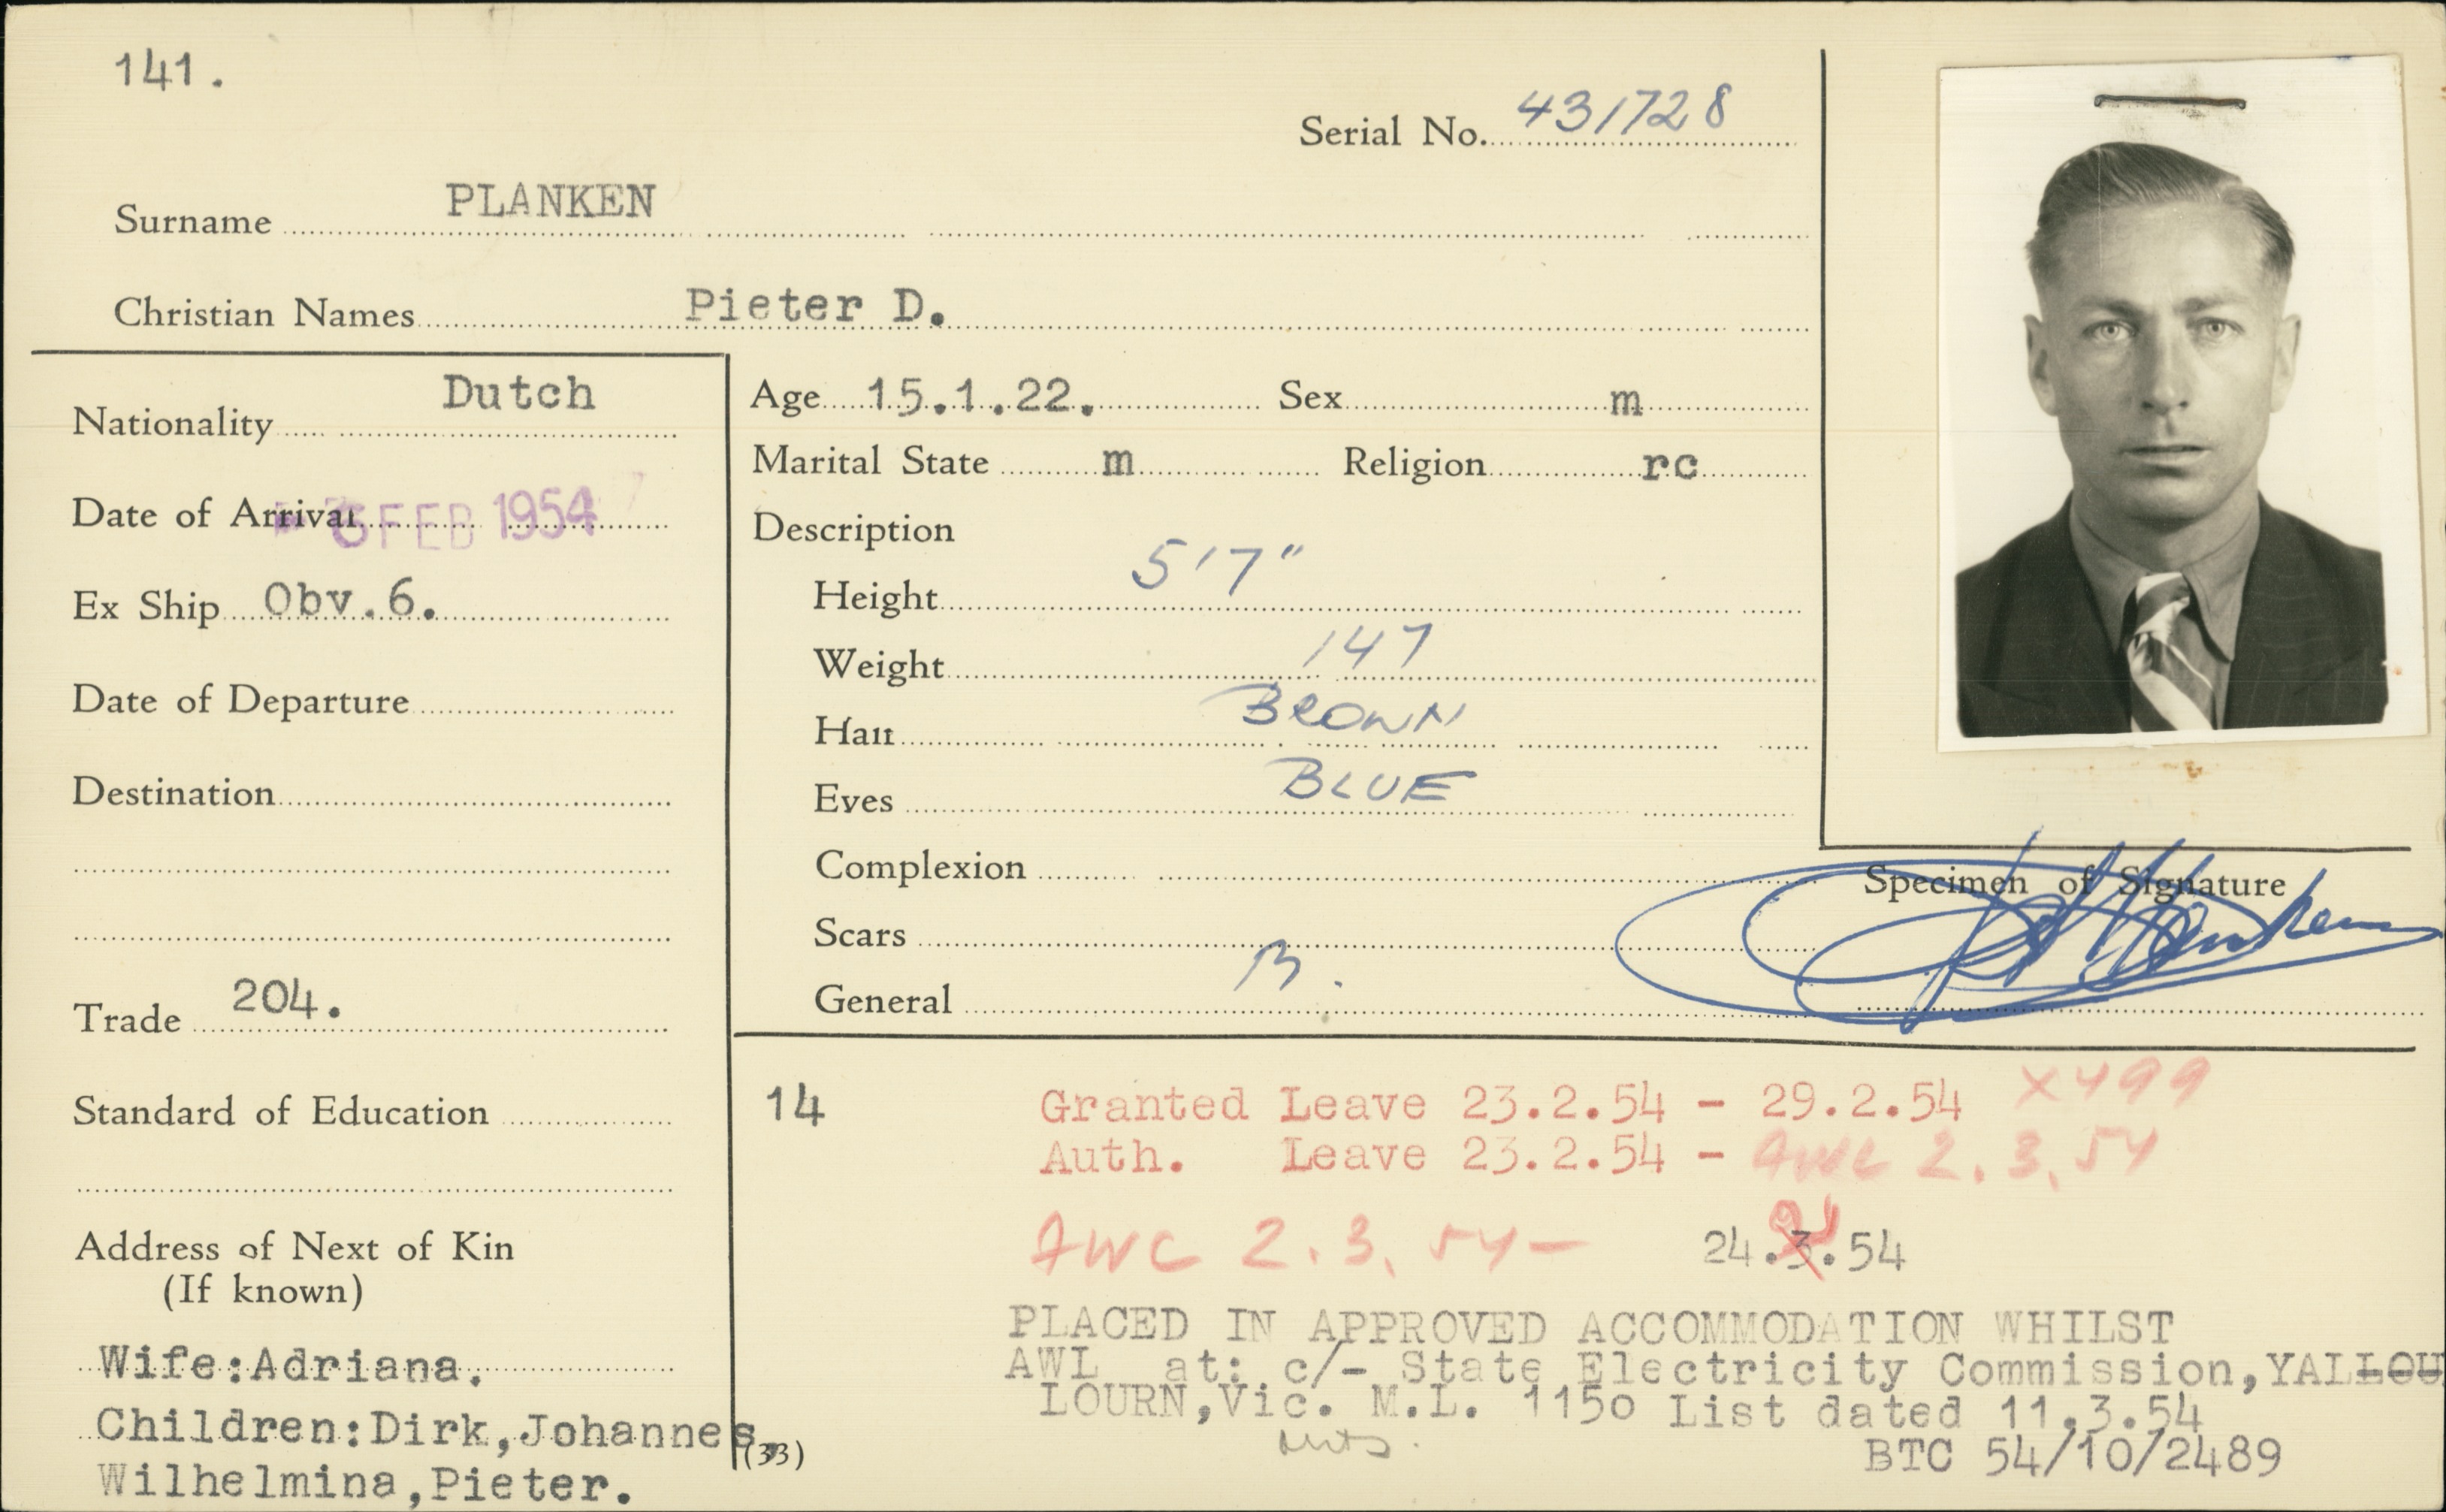 141.
Serial No. 431728
Surname PLANKEN
Christian Names Pieter D.
Nationality Dutch
Date of Arrival 6 FEB 1954
Ex Ship Obv.6.
Date of Departure
Destination
Trade 204.
Standard of Education
Address of Next of Kin
(If known)
Wife:Adriana.
Children:Dirk,Johannes,
Wilhelmina,Pieter.
Age 15.1.22. Sex m
Marital State m Religion rc
Description
Height 5'7"
Weight 147
Hair BROWN
Eyes BLUE
Complexion
Scars
General B.
Specimen of Signature
14 Granted Leave 23.2.54 - 29.2.54 X499
Auth. Leave 23.2.54 - AWL 2.3.54
AWC 2.3.54- 24.3.54
PLACED IN APPROVED ACCOMMODATION WHILST
AWL at: c/- State Electricity Commission,YALLOU
LOURN,Vic. M.L. 1150 List dated 11.3.54
BTC 54/10/2489
(33)